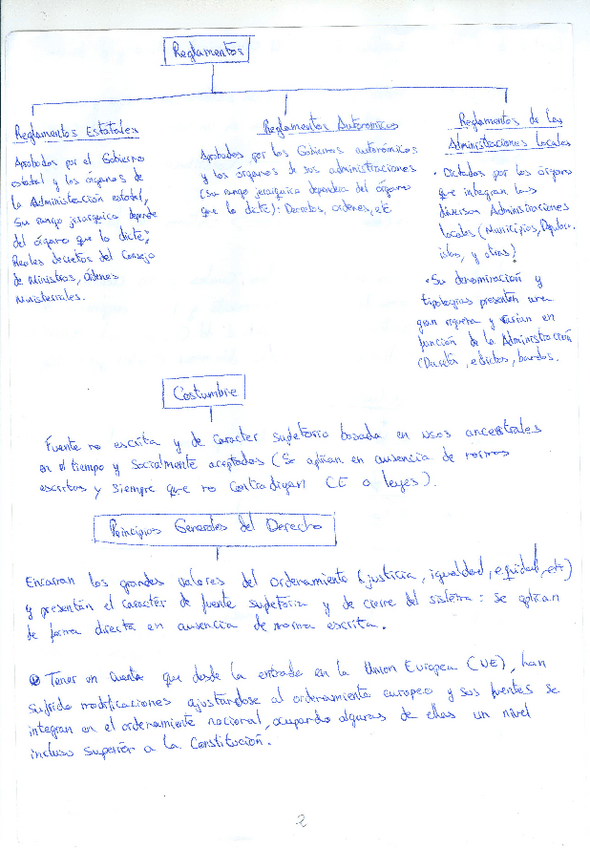 Reglamentos
Reglamentos Estatales
Aprobados por el Gobierno
estatal y los órganos de
la Administración estatal,
Su rango jerarquico depende
del órgano que lo dicte;
Reales decretos del Consejo
de Ministros, Ordenes
Ministeriales.
Reglamentos Autonómicos
Aprobados por los Gobiernos autonómicos
y los órganos de sus administraciones
(su rango jerarquico dependera del órgano
que lo dicte): Decretos, ordenes, etc
Reglamentos de las
Administraciones Locales
• Dictados por los órganos
que integran las
diversas Administraciones
locales (Municipios, Diputac.
islas, y otras)
• Su denominación y
tipologias presentan una
gran riqueza y varian en
función de la Administración
(Decreto, edictos, bandos.
Costumbre
Fuente no escrita y de caracter supletorio basada en usos ancestrales
en el tiempo y Socialmente aceptados (Se aplican en ausencia de normas
escritas y siempre que no Contradigan CE o leyes).
Principios Generales del Derecho
Encarnan los grandes valores del ordenamiento (justicia, igualdad, equidad, etc)
y presentan el caracter de fuente supletoria y de cierre del sistema: se aplican
de forma directa en ausencia de norma escrita.
Tener en cuenta que desde la entrada en la Union Europea (UE), han
sufrido modificaciones ajustandose al ordenamiento europeo y sus fuentes se
integran en el ordenamiento nacional, ocupando algunas de ellas un nivel
incluso superior a la Constitución.
2